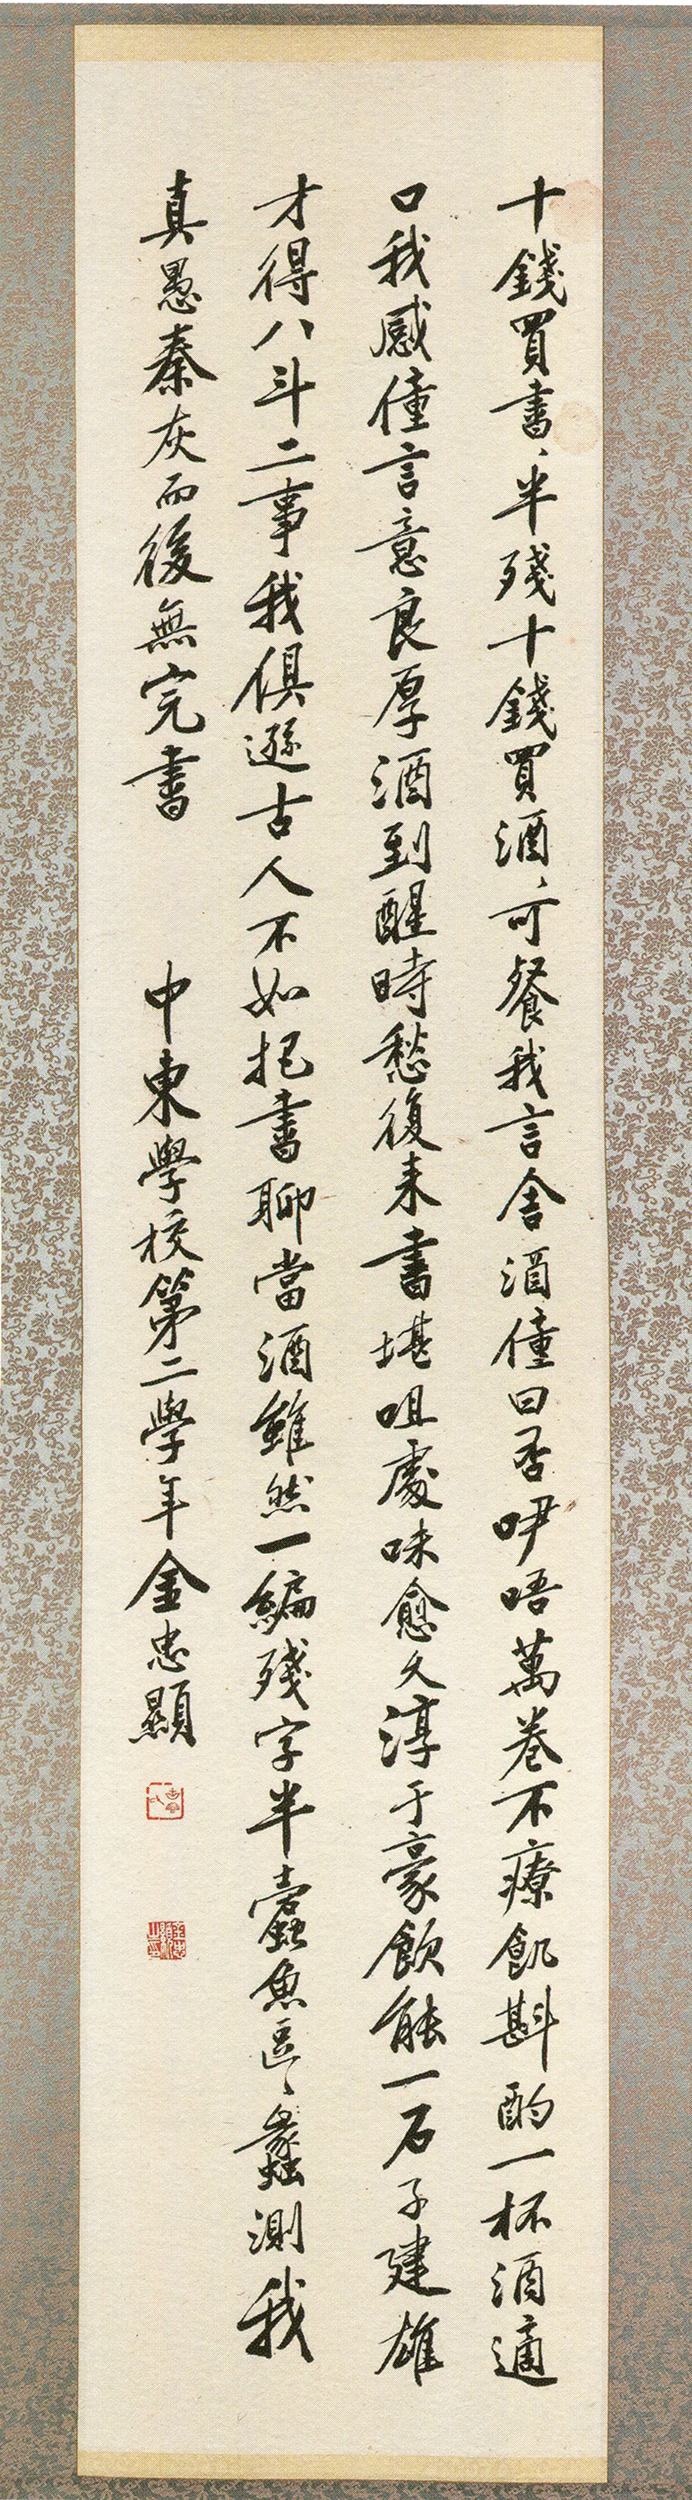 十錢買書、半殘十錢買酒、可餐我言舍酒僮曰否咿唔萬卷不療飢斟酌一杯酒適
口我感僮言意良厚酒到醒時愁復来書堪咀處味愈久淳于豪飲能一石子建雄
才得八斗二事我俱遜古人不如把書聊當酒雖然一編殘字半蠹魚區、蠡測我
真愚秦灰而後無完書 中東學校第二學年金忠顯